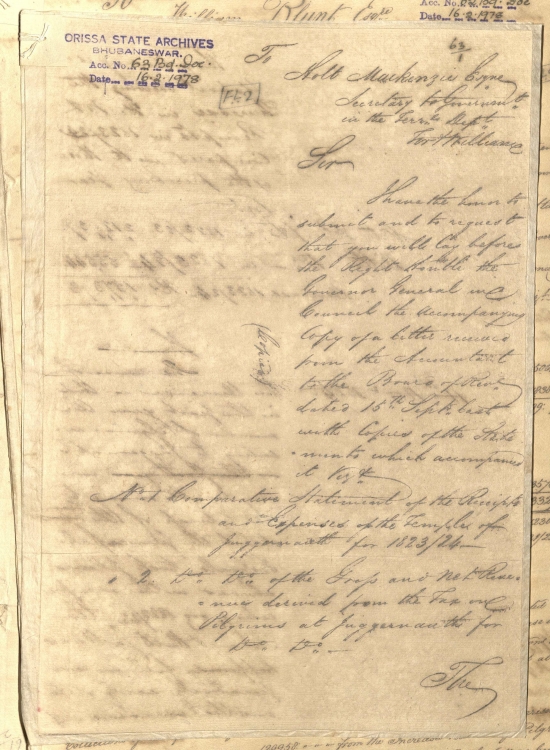 William Blunt Esqre
ORISSA STATE ARCHIVES
BHUBANESWAR.
Acc. No. 63 Bd. Doc.
Date 16-2-1973
Date 16-2-1973
63
1
To
Holt Mackenzie Esqre
Secretary to Governmt
in the Terrl Dept
Fort William
Sir
I have the honor to
submit and to request
that you will lay before
the Right Honble the
Governor General in
Council the accompanying
Copy of a letter received
from the Accountant
to the Board of Revd
dated 15th Septr last
with Copies of the State
ments which accompanied
it Vizt
(Copied)
No 1 Comparative Statement of the Receipts
and Expenses of the Temples of
Juggernauth for 1823/24
" 2. Do Do of the Gross and Net Reve
nue derived from the Tax on
Pilgrims at Juggernauth for
Do Do
The